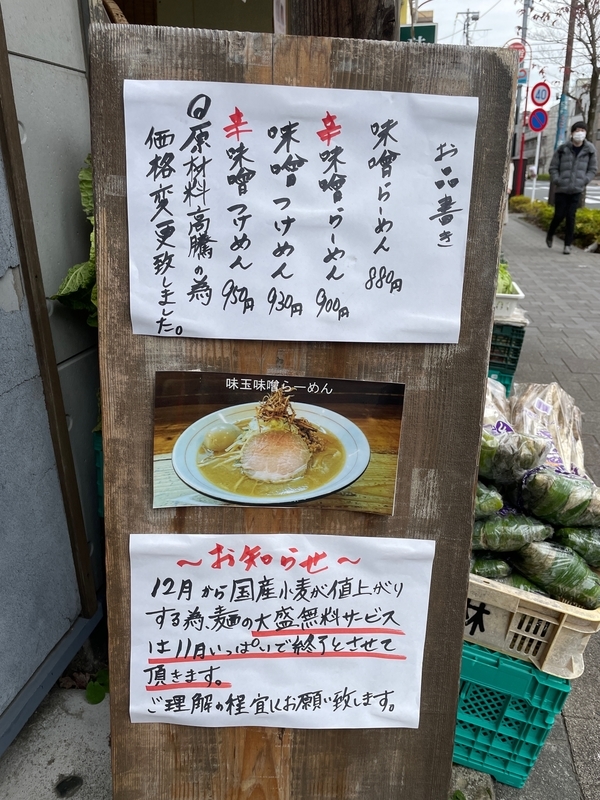 お品書き
味噌らーめん 880円
辛味噌らーめん 900円
味噌つけめん 930円
辛味噌つけめん 950円
日原材料高騰の為
価格変更致しました。
味玉味噌らーめん
～お知らせ～
12月から国産小麦が値上がり
する為、麺の大盛無料サービス
は11月いっぱいで終了とさせて
頂きます。
ご理解の程宜しくお願い致します。
40
林